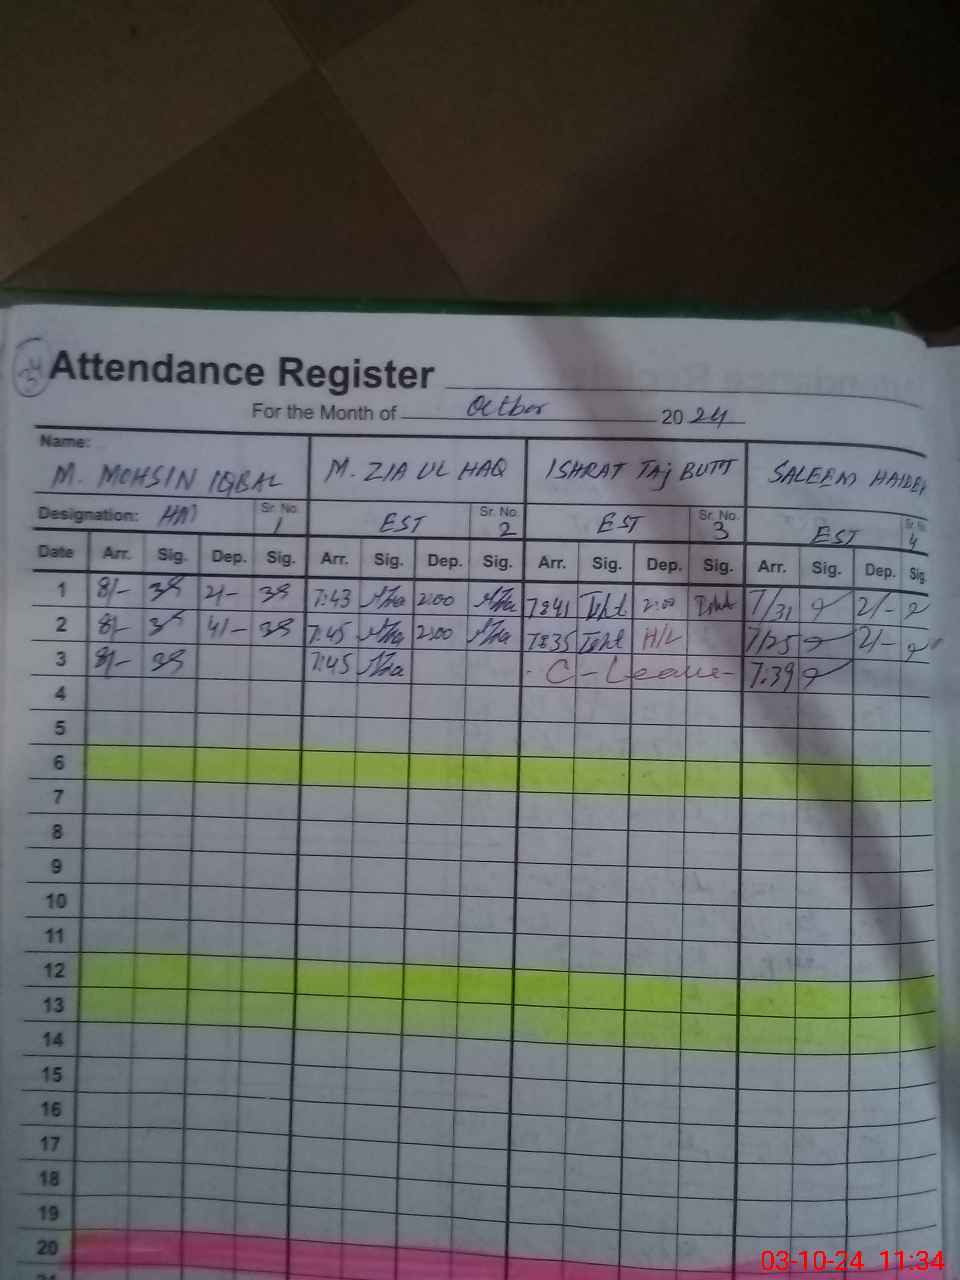 Attendance Register
For the Month of Octber 2024
Name: M. MOHSIN IQBAL M. ZIA UL HAQ ISHRAT TAJ BUTT SALEEM HAIDER
Designation: Sr. No. 1 EST Sr. No. 2 EST Sr. No. 3 EST Sr. No. 4
Date Arr. Sig. Dep. Sig. Arr. Sig. Dep. Sig. Arr. Sig. Dep. Sig. Arr. Sig. Dep. Sig.
1 8/- 2/- 7:43 2:00 7:41 2:00 7/31 2/-
2 8/- 4/- 7:45 2:00 7:35 H/L 7/25 2/-
3 8/- 7:45 C-Leave 7:39
4
5
6
7
8
9
10
11
12
13
14
15
16
17
18
19
20
03-10-24 11:34